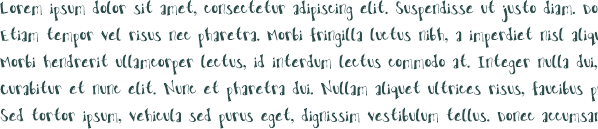 Lorem ipsum dolor sit amet, consectetur adipiscing elit. Suspendisse ut justo diam. Do
Etiam tempor vel risus nec pharetra. Morbi fringilla luctus nibh, a imperdiet nisl aliqu
Morbi hendrerit ullamcorper lectus, id interdum lectus commodo at. Integer nulla dui,
curabitur et nunc elit. Nunc et pharetra dui. Nullam aliquet ultrices risus, faucibus p
Sed tortor ipsum, vehicula sed purus eget, dignissim vestibulum tellus. Donec accumsan